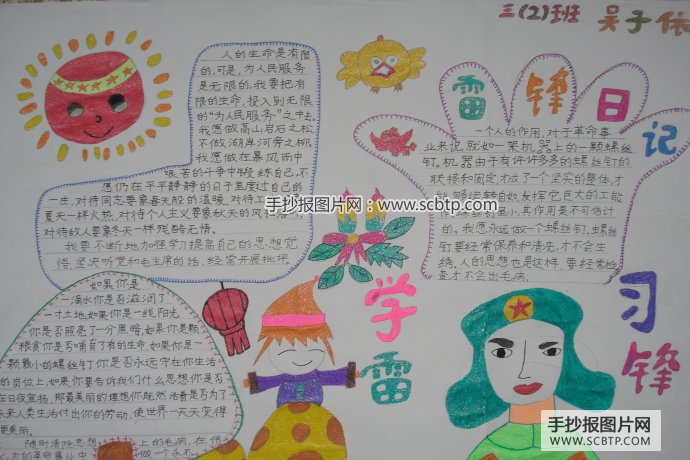 三(2)班 吴子依
人的生命是有限
的,可是,为人民服务
是无限的,我要把有
限的生命,投入到无限
的“为人民服务”之中去。
我愿做高山岩石之松
不做湖岸河旁之柳。
我愿做在暴风雨中
艰苦的斗争中锻练自己,不
愿仍在平平静静的日子里度过自己的
一生,对待同志要象春天般的温暖,对待工
夏天一样火热,对待个人主义要象秋天的风
对待敌人要象冬天一样残酷无情。
我要不断地加强学习提高自己的思想觉
悟,坚决听党和毛主席的话,经常开展批评
雷锋日记
一个人的作用,对于革命事
业来说,就如一架机器上的一颗螺丝
钉。机器由于有许许多多的螺丝钉的
联接和固定,才成了一个坚实的整体,才
能
其作用是不可估计
的。我愿永远做一个螺丝钉。螺丝
钉要经常保养和清洗,才不会生
锈。人的思想也是这样,要经常检
查,才不会出毛病。
手抄报图片网 www.scbtp.com
学雷
习锋
如果你是
一滴水你是否滋润了
一寸土地如果你是一线阳光,
你是否照亮了一分黑暗,如果你是一颗
粮食你是否哺育了有的生命,如果你是一
颗最小的螺丝钉你是否永远守在你生活
的岗位上,如果你要告诉我们什么思想你是否
在日夜宣扬,那最美丽的理想你既然活着是否为了
未来人类生活付出你的劳动,使世界一天天变得
更美丽。
随时清除思想上的毛病,在伟
大的革命事业中做一个永不
手抄报图片网
WWW.SCBTP.COM